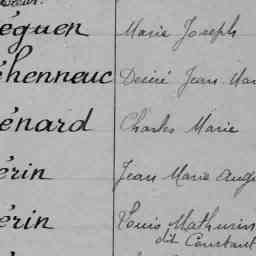 éguen Marie Joseph
éhenneuc Désiré Jean Mar
énard Charles Marie
érin Jean Marie Ange
érin Louis Mathurin
dit Constant